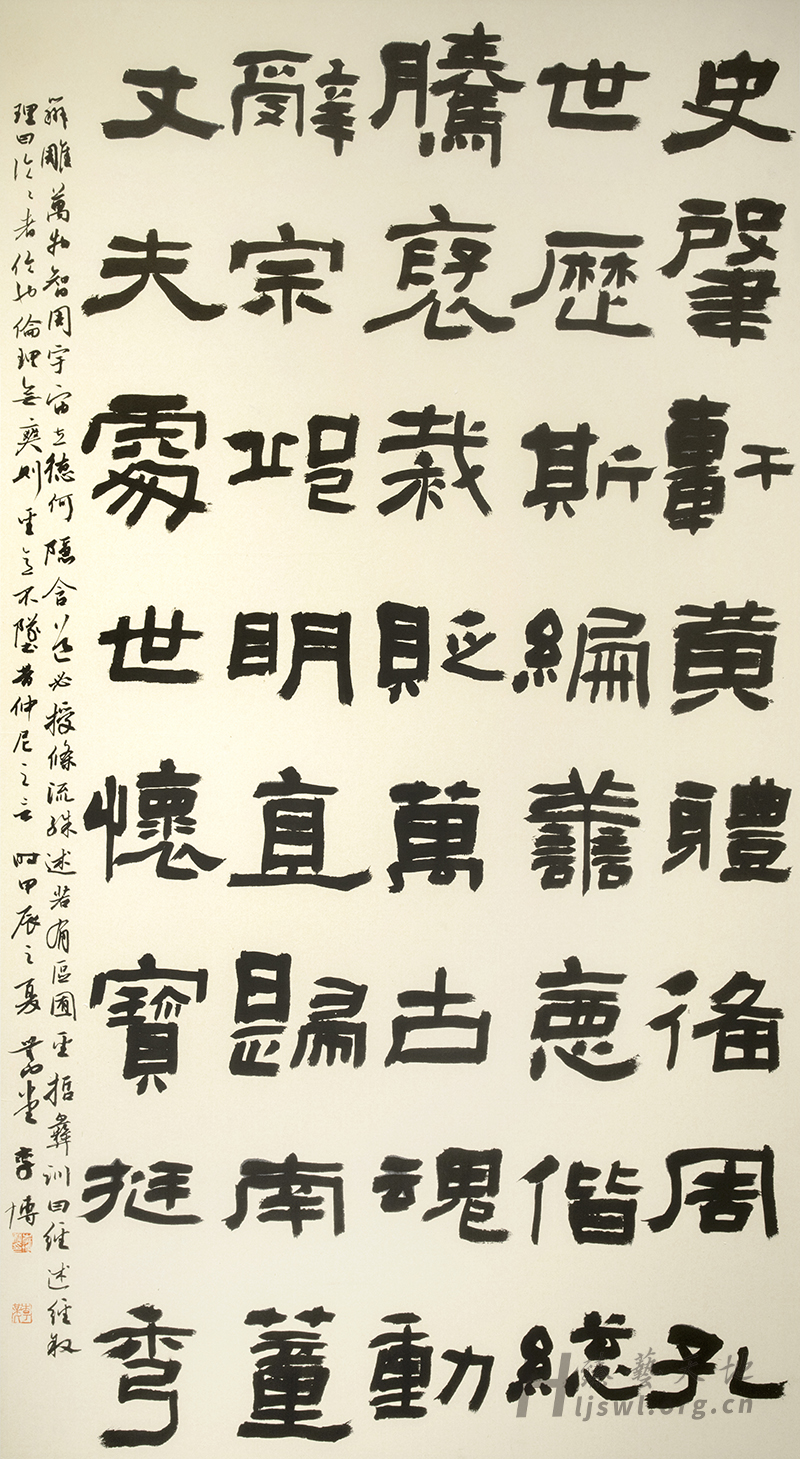 史肇軒黃體備周孔
世歷斯編善惡偕總
騰褒裁貶萬古魂動
辭宗邱明直歸南董
丈夫處世懷寶挺秀
辨雕萬物智周宇宙立德何隱含道必授條流殊述若有區囿聖哲彝訓曰經述經敘
理曰論々者倫也倫理無爽則聖意不墜昔仲尼之言 時甲辰之夏 堂 李博
Hljswl.org.cn